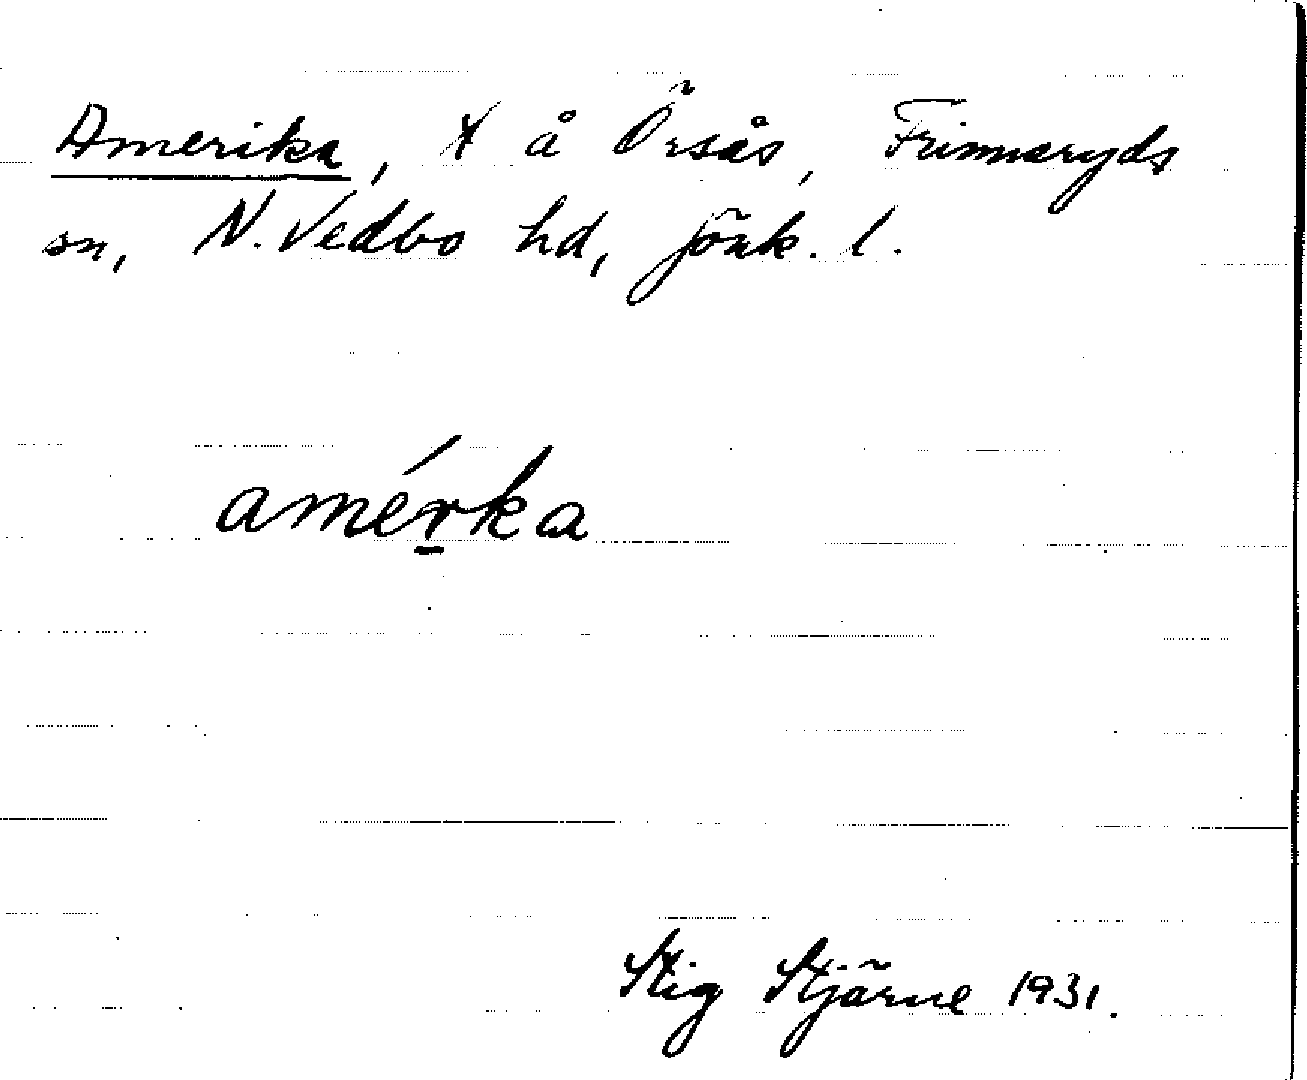 Amerika, X å Örsås, Frinnaryds
sn, N. Vedbo hd, Jönk. l.
amér̠ka
Stig Stjärne 1931.